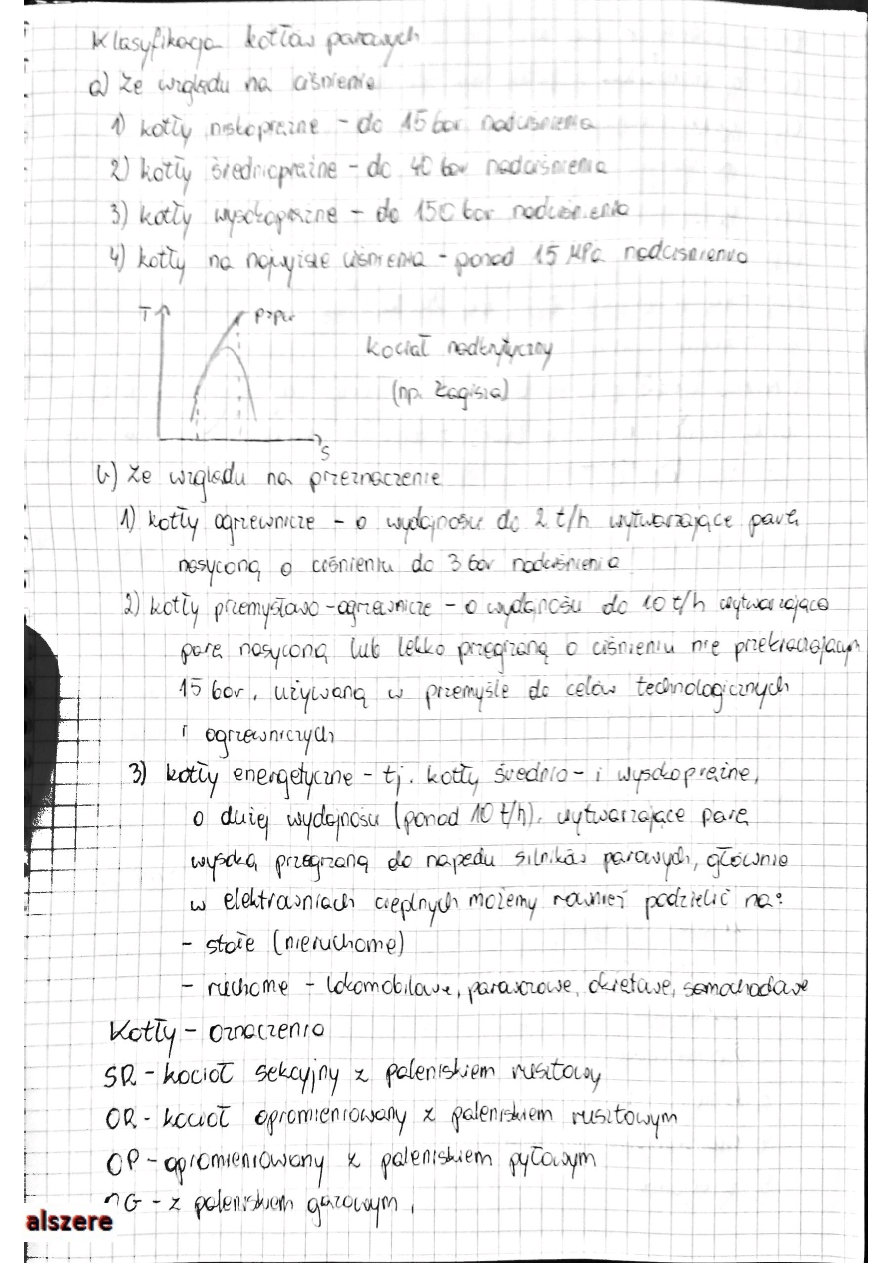 Klasyfikacja kotłów parowych
a) Ze względu na ciśnienie
1) kotły niskoprężne - do 15 bar nadciśnienia
2) kotły średnioprężne - do 40 bar nadciśnienia
3) kotły wysokoprężne - do 150 bar nadciśnienia
4) kotły na najwyższe ciśnienia - ponad 15 MPa nadciśnienia
T
kocioł nadkrytyczny
(np. Łagisza)
S
b) Ze względu na przeznaczenie
1) kotły ogrzewnicze - o wydajności do 2 t/h wytwarzające parę
nasyconą o ciśnieniu do 3 bar nadciśnienia
2) kotły przemysłowo-ogrzewnicze - o wydajności do 10 t/h wytwarzające
parę nasyconą lub lekko przegrzaną o ciśnieniu nie przekraczającym
15 bar, używaną w przemyśle do celów technologicznych
i ogrzewniczych
3) kotły energetyczne - tj. kotły średnio- i wysokoprężne,
o dużej wydajności (ponad 10 t/h), wytwarzające parę
wysoko przegrzaną do napędu silników parowych, głównie
w elektrowniach cieplnych możemy również podzielić na:
- stałe (nieruchome)
- ruchome - lokomobilowe, parowozowe, okrętowe, samochodowe
Kotły - oznaczenia
SR - kocioł sekcyjny z paleniskiem rusztowy
OR - kocioł opromieniowany z paleniskiem rusztowym
OP - opromieniowany z paleniskiem pyłowym
OG - z paleniskiem gazowym,
alszere